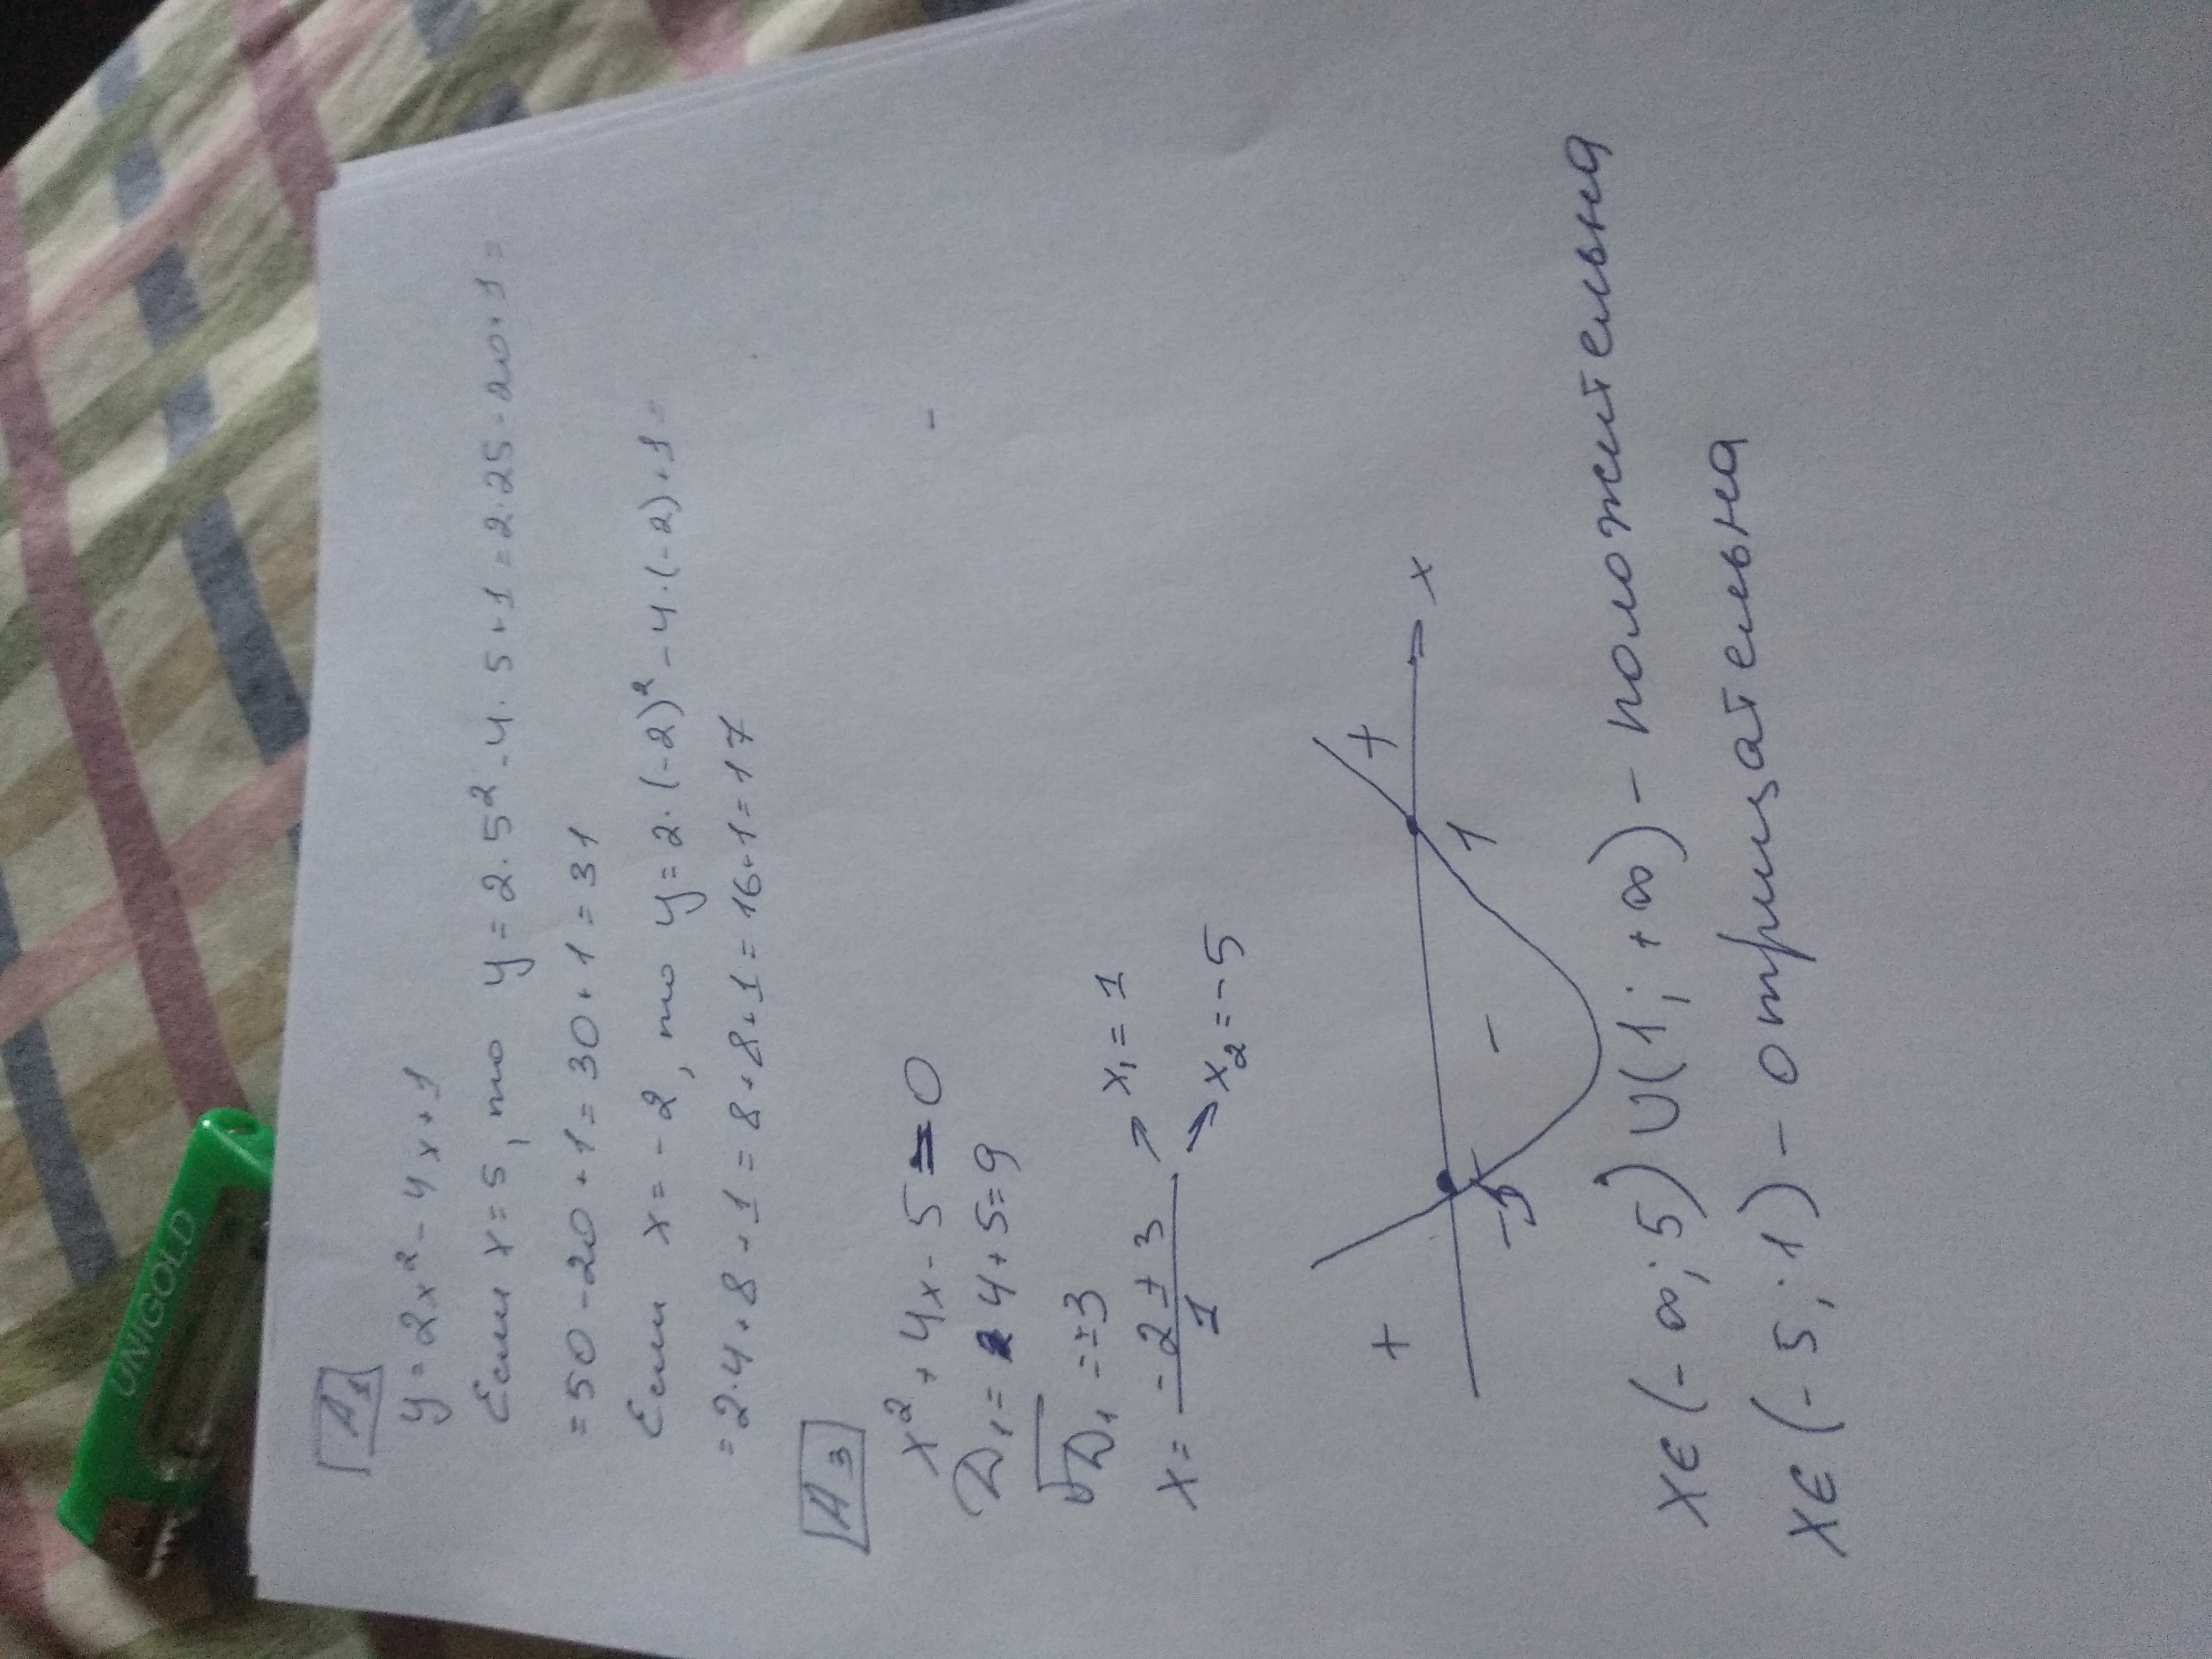 А1
y = 2x² - 4x + 1
Если x = 5, то y = 2 · 5² - 4 · 5 + 1 = 2 · 25 - 20 + 1 =
= 50 - 20 + 1 = 30 + 1 = 31
Если x = -2, то y = 2 · (-2)² - 4 · (-2) + 1 =
= 2 · 4 + 8 + 1 = 8 + 8 + 1 = 16 + 1 = 17
А3
x² + 4x - 5 = 0
D₁ = 4 + 5 = 9
√D₁ = ±3
x = (-2 ± 3)/1 → x₁ = 1
→ x₂ = -5
+ - +
-5 1 x
x ∈ (-∞; 5) ∪ (1; +∞) - положительна
x ∈ (-5; 1) - отрицательна
UNIGOLD